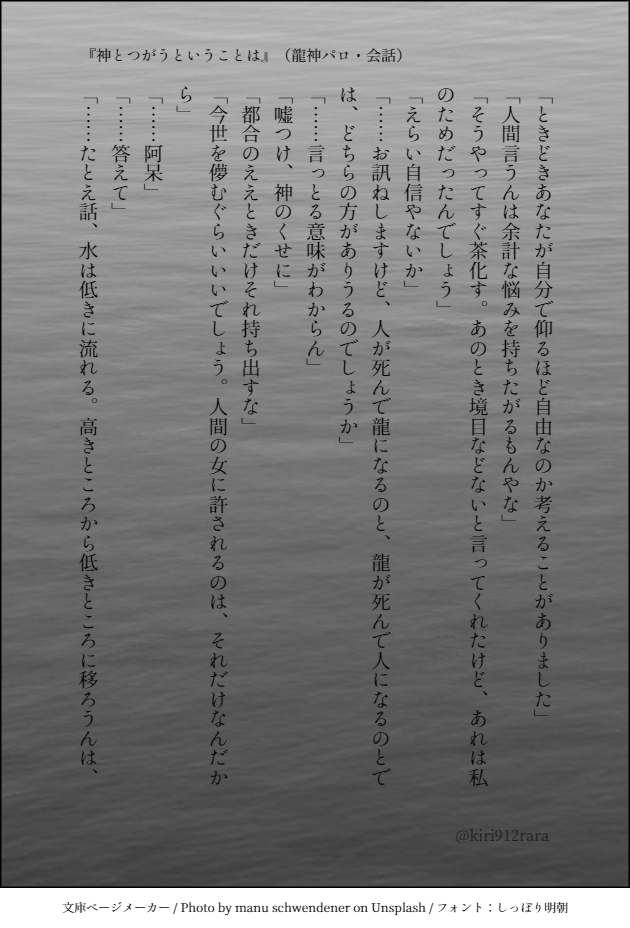 『神とつがうということは』（龍神パロ・会話）
「ときどきあなたが自分で仰るほど自由なのか考えることがありました」
「人間言うんは余計な悩みを持ちたがるもんやな」
「そうやってすぐ茶化す。あのとき境目などないと言ってくれたけど、あれは私
のためだったんでしょう」
「えらい自信やないか」
「……お訊ねしますけど、人が死んで龍になるのと、龍が死んで人になるのとで
は、どちらの方がありうるのでしょうか」
「……言っとる意味がわからん」
「嘘つけ、神のくせに」
「都合のええときだけそれ持ち出すな」
「今世を儚むぐらいいいでしょう。人間の女に許されるのは、それだけなんだか
ら」
「……阿呆」
「……答えて」
「……たとえ話、水は低きに流れる。高きところから低きところに移ろうんは、
@kiri912rara
文庫ページメーカー / Photo by manu schwendener on Unsplash / フォント：しっぽり明朝